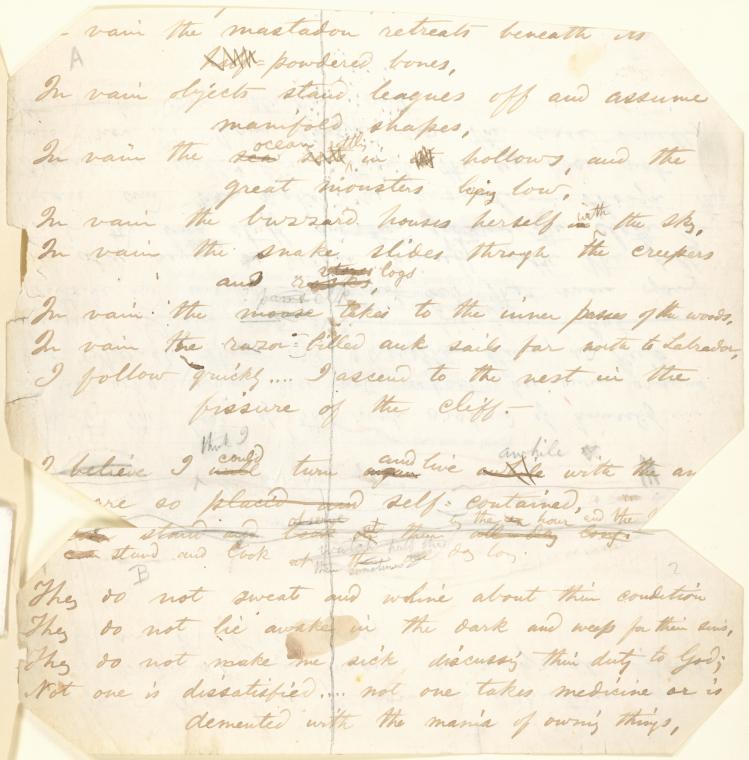 vain the mastadon retreats beneath its
A
powdered bones,
In vain objects stand leagues off and assume
manifold shapes,
ocean settling
In vain the sea in hollows, and the
great monsters lying low,
with
In vain the buzzard houses herself in the sky,
In vain the snake slides through the creepers
logs
and
In vain the moose takes to the inner passes of the woods,
In vain the razor-billed auk sails far north to Labrador,
I follow quickly .... I ascend to the nest in the
fissure of the cliff.—
think I
could and awhile
I believe I turn again live awhile with the an
are so placid and self-contained,
the hour and the
stand and look them
stand and look day long.
B
2
They do not sweat and whine about their condition
They do not lie awake in the dark and weep for their sins,
They do not make me sick discussing their duty to God;
Not one is dissatisfied .... not one takes medicine or is
demented with the mania of owning things,